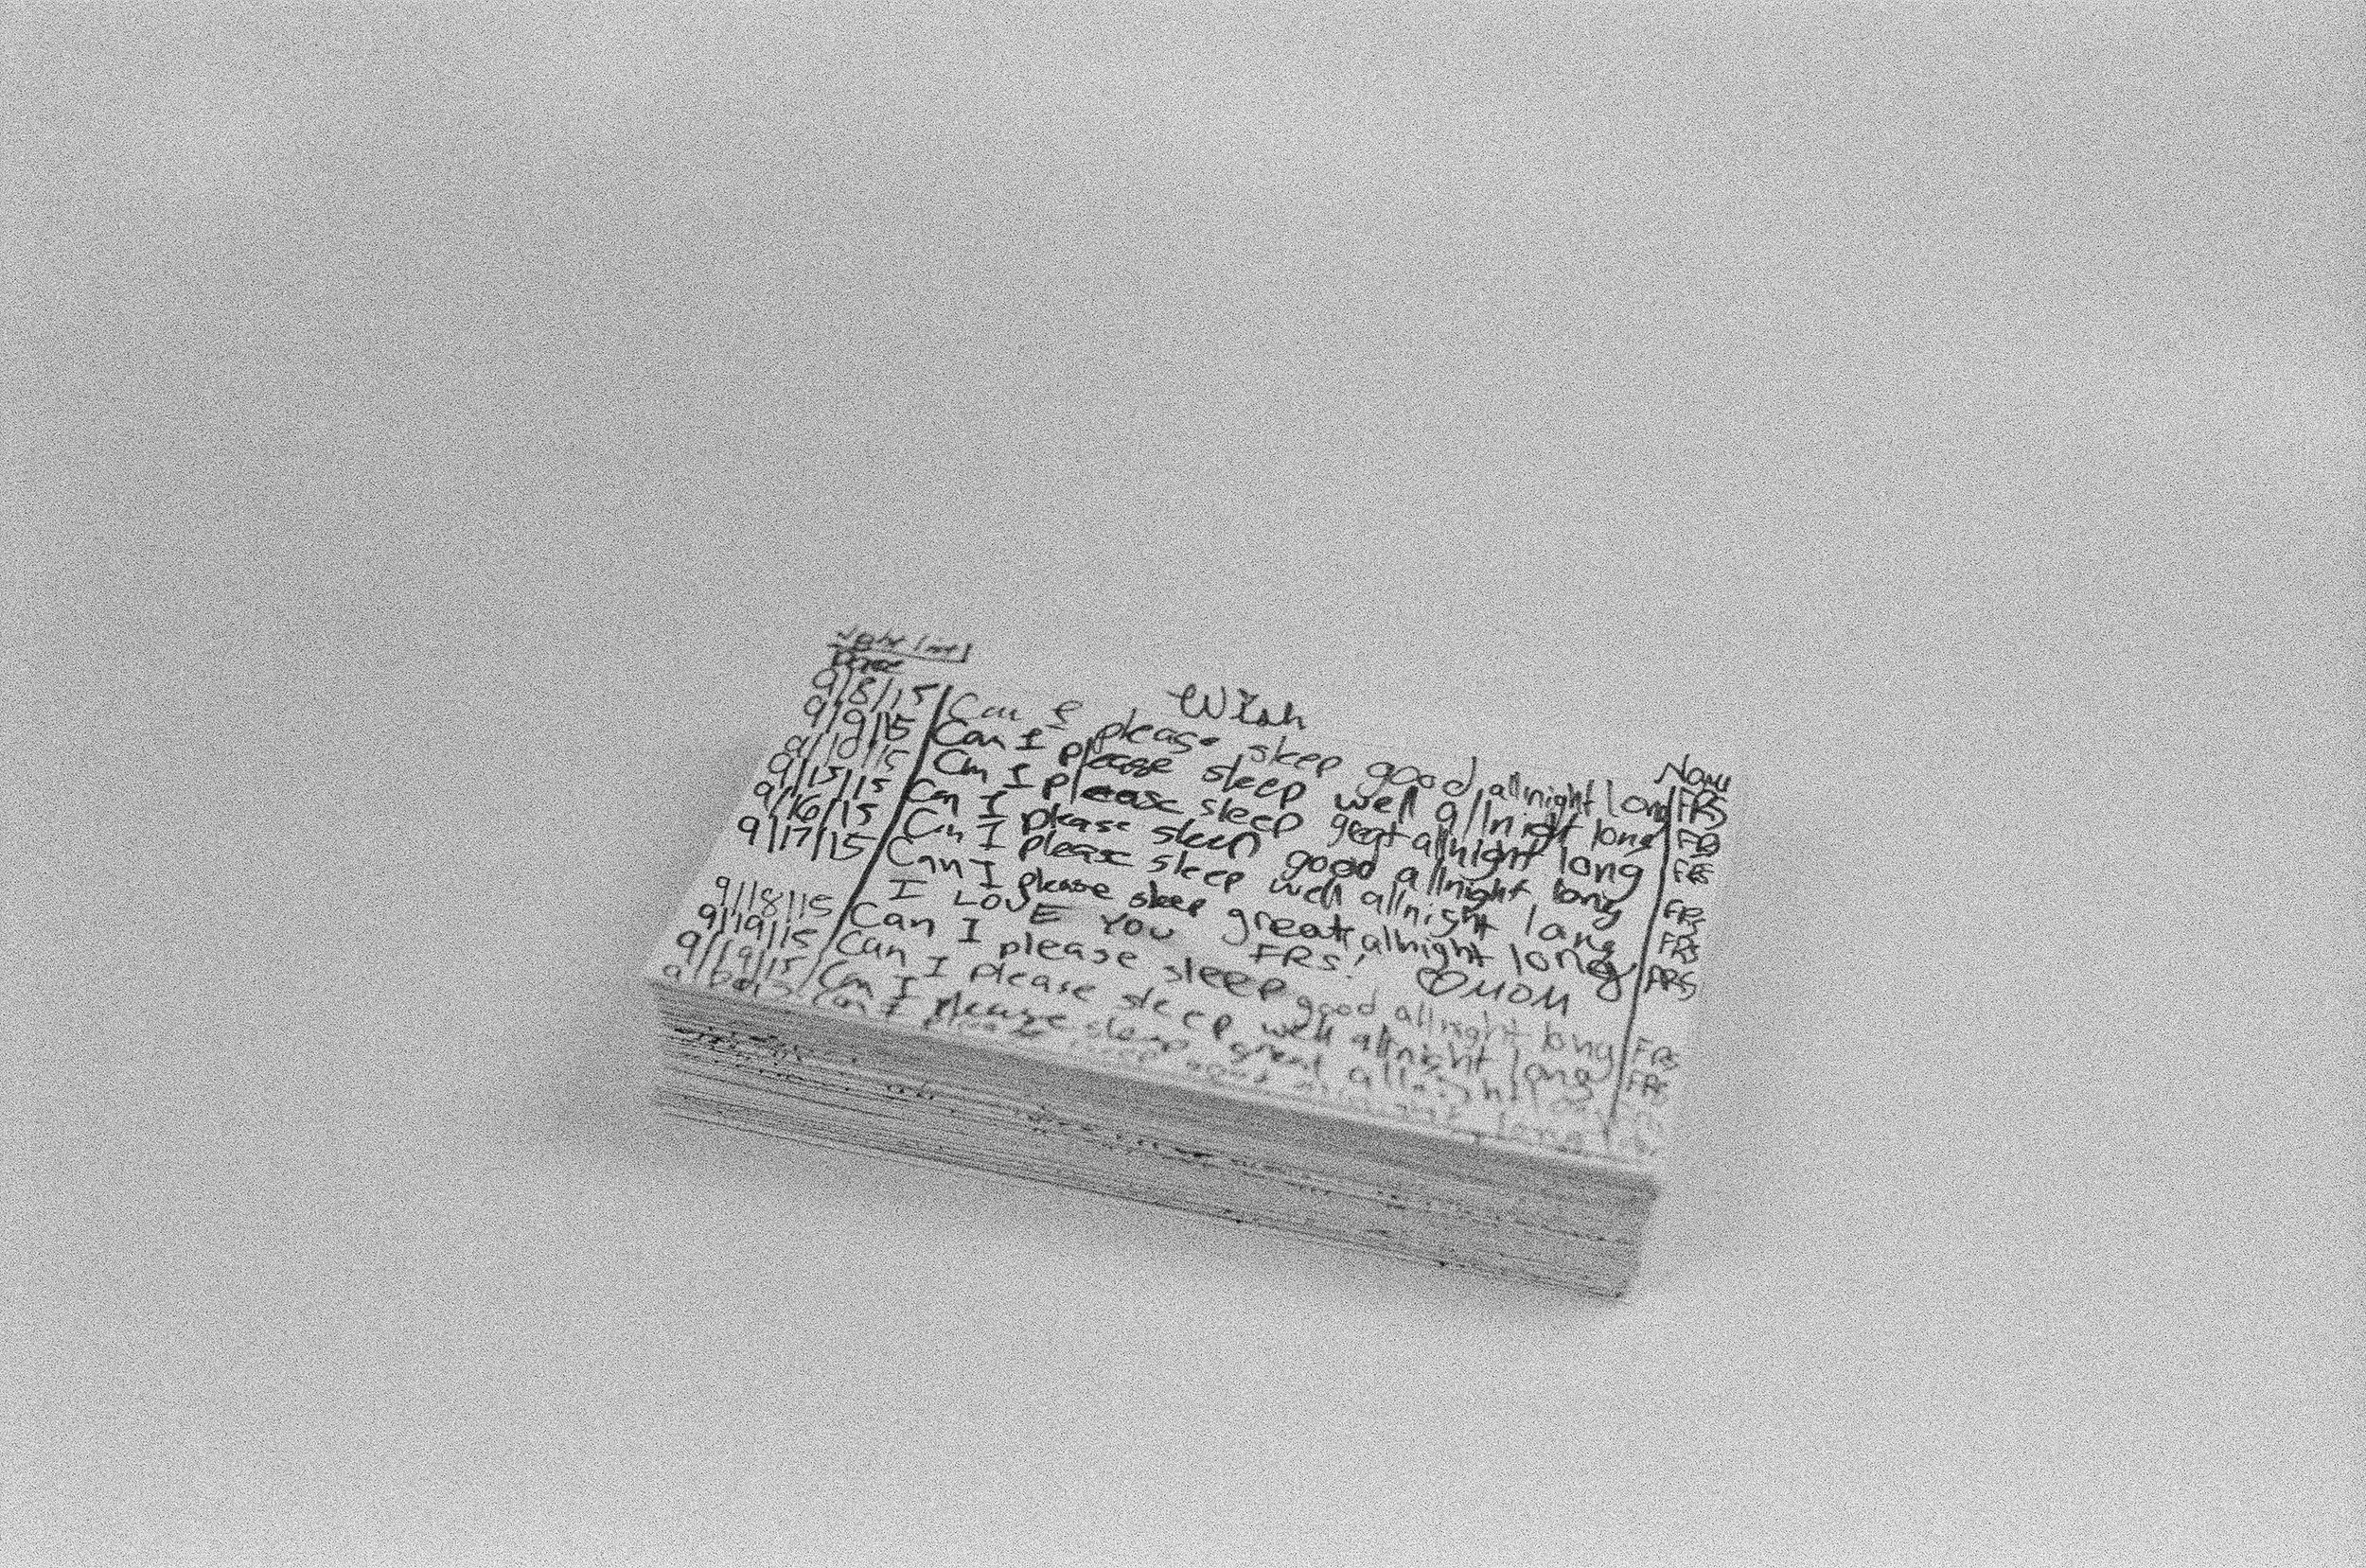 Date Wish Name
9/8/15 Can I please sleep good all night long FRS
9/9/15 Can I please sleep well allnight long FRS
9/10/15 Can I please sleep great allnight long FRS
9/15/15 Can I please sleep good allnight long FRS
9/16/15 Can I please sleep well allnight long FRS
9/17/15 Can I please sleep great allnight long FRS
I LOVE YOU FRS! MOM
9/18/15 Can I please sleep good allnight long FRS
9/19/15 Can I please sleep well allnight long FRS
9/19/15 Can I please sleep great allnight long
Can I please sleep good long